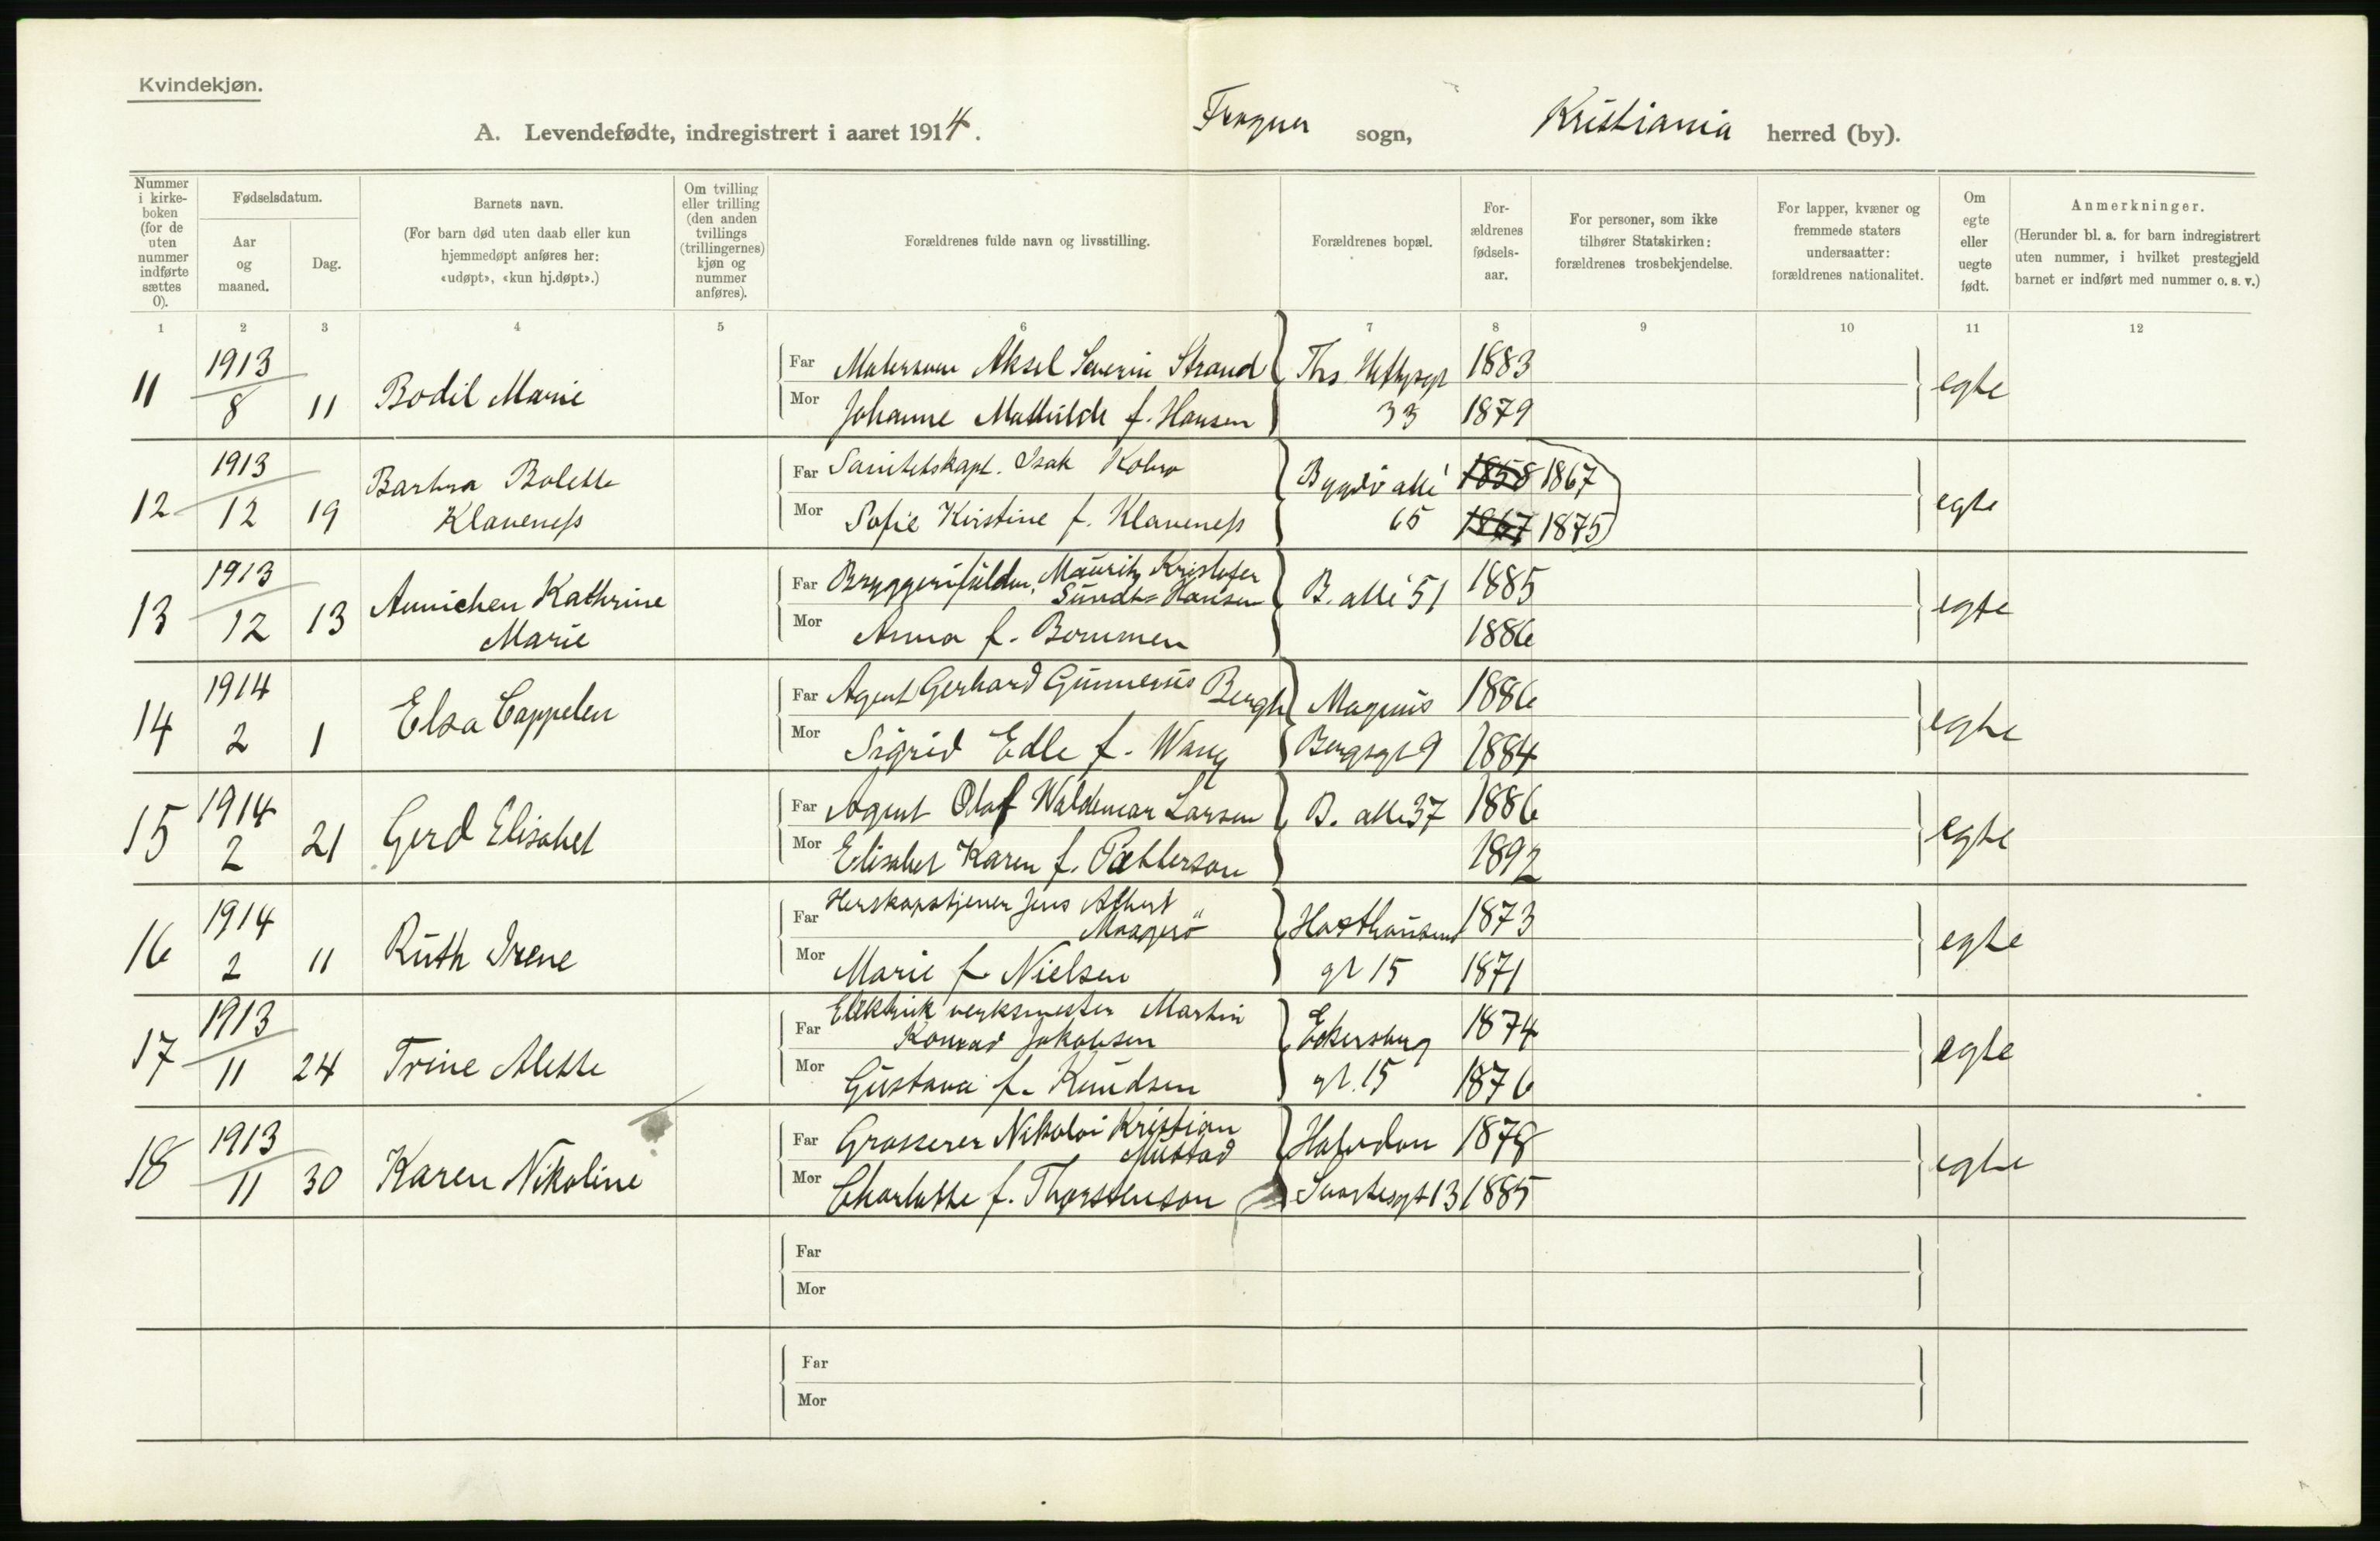 Kvindekjøn.
A. Levendefødte, indregistrert i aaret 1914. Frogner sogn, Kristiania herred (by).
Nummer i kirke-boken (for de uten nummer indførte sættes 0).
Fødselsdatum.
Aar og maaned.
Dag.
Barnets navn.
(For barn død uten daab eller kun hjemmedøpt anføres her: «udøpt», «kun hj.døpt».)
Om tvilling eller trilling (den anden tvillings (trillingernes) kjøn og nummer anføres).
Forældrenes fulde navn og livsstilling.
Forældrenes bopæl.
For-ældrenes fødsels-aar.
For personer, som ikke tilhører Statskirken: forældrenes trosbekjendelse.
For lapper, kvæner og fremmede staters undersaatter: forældrenes nationalitet.
Om egte eller uegte født.
Anmerkninger.
(Herunder bl. a. for barn indregistrert uten nummer, i hvilket prestegjeld barnet er indført med nummer o. s. v.)
1 2 3 4 5 6 7 8 9 10 11 12
1913 Far Aksel Severin Strand Ths. Heftysgt 1883
11 8 11 Bodil Marie egte
Mor Johanne Mathilde f. Hansen 33 1879
1913 Barbra Bolette Far Sanitetskapt. Isak Kobro Bygdø allé 1858 1867
12 12 19 Klaveness egte
Mor Sofie Kirstine f. Klaveness 65 1867 1875
1913 Far Mauritz Kristofer
Sundt-Hansen B. allé 51 1885
13 12 13 Annichen Kathrine egte
Marie Mor Anna f. Bommen 1886
1914 Far Agent Gerhard Gunnerius Bergh Magnus 1886
14 2 1 Elsa Cappelen egte
Mor Sigrid Edle f. Wang Bergsgt 9 1884
1914 Far Agent Olaf Waldemar Larsen B. alle 37 1886
15 2 21 Gerd Elisabet egte
Mor Elisabet Karen f. Pettersson 1892
1914 Far Herskapstjener Jens Albert
Maagerö 1873
16 2 11 Ruth Irene egte
Mor Marie f. Nielsen gt 15 1871
1913 Far Elektrik verksmester Martin
Konrad Jakobsen Eckersberg 1874
17 11 24 Trine Alette egte
Mor Gustava f. Knudsen gt. 15 1876
1913 Far Grosserer Nikolai Kristian
Mustad Halvdan 1878
18 11 30 Karen Nikoline egte
Mor Charlotte f. Thorstenson Svartesgt 13 1885
Far
Mor
Far
Mor